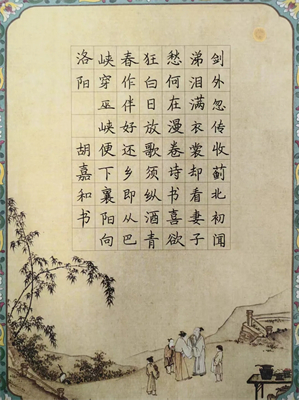 剑外忽传收蓟北初闻
涕泪满衣裳却看妻子
愁何在漫卷诗书喜欲
狂白日放歌须纵酒青
春作伴好还乡即从巴
峡穿巫峡便下襄阳向
洛阳 胡嘉和书